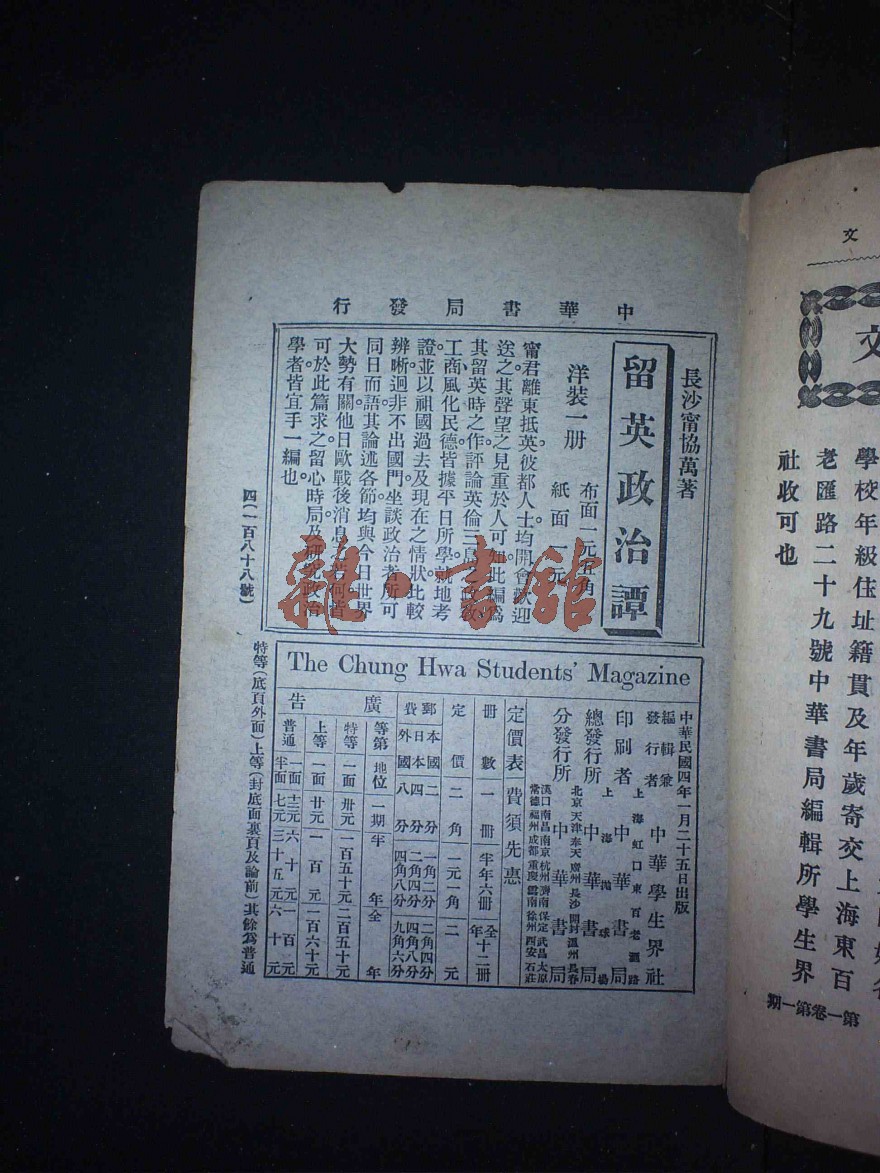 中華書局發行
長沙甯協萬著
留英政治譚
洋裝一册
布面一元五角
紙面一元
甯君離東抵英彼都人士均開會歡迎
送之其聲望之見重於人可知此編爲
其留英時之作評論英倫三島之政教
工商風化民德皆據平日所學就地考
證並以祖國過去及現在之情狀比較
辨晰迥非不出國門坐談政治者所可
同日而語其論述各節均與今日世界
大勢有關他日歐戰後消息之若何皆
可於此篇求之留心時局及研究政治
學者皆宜手一編也。
四(一百八十八號)
The Chung Hwa Students' Magazine
中華民國四年一月二十五日出版
編輯兼發行者 中華學生界社
上海虹口東百老匯路
印刷者 中華書局
上海拋球場
總發行所 中華書局
北京天津奉天廣州長沙開封溫州長春
分發行所 中華書局
漢口南昌南京杭州濟南保定武昌太原
常德福州成都重慶雲南徐州西安石莊
定價表 費須先惠
册數 一册 半年六册 全年十二册
定價 二角 一元一角 二元
郵費 本國 二分 一角二分 二角四分
日本 四分 二角四分 四角八分
外國 八分 四角八分 九角六分
廣告
等第 地位 一期 半年 全年
特等 一面 卅元 一百五十元 二百五十元
上等 一面 廿元 一百元 一百六十元
普通 一面 十二元 六十元 一百元
半面 七元 三十五元 六十元
特等(底頁外面)上等(封底面裏頁及論前)其餘爲普通
文
文
學校年級住址籍貫及年歲寄交上海東百
老匯路二十九號中華書局編輯所學生界
社收可也
第一卷第一期
雜·書館